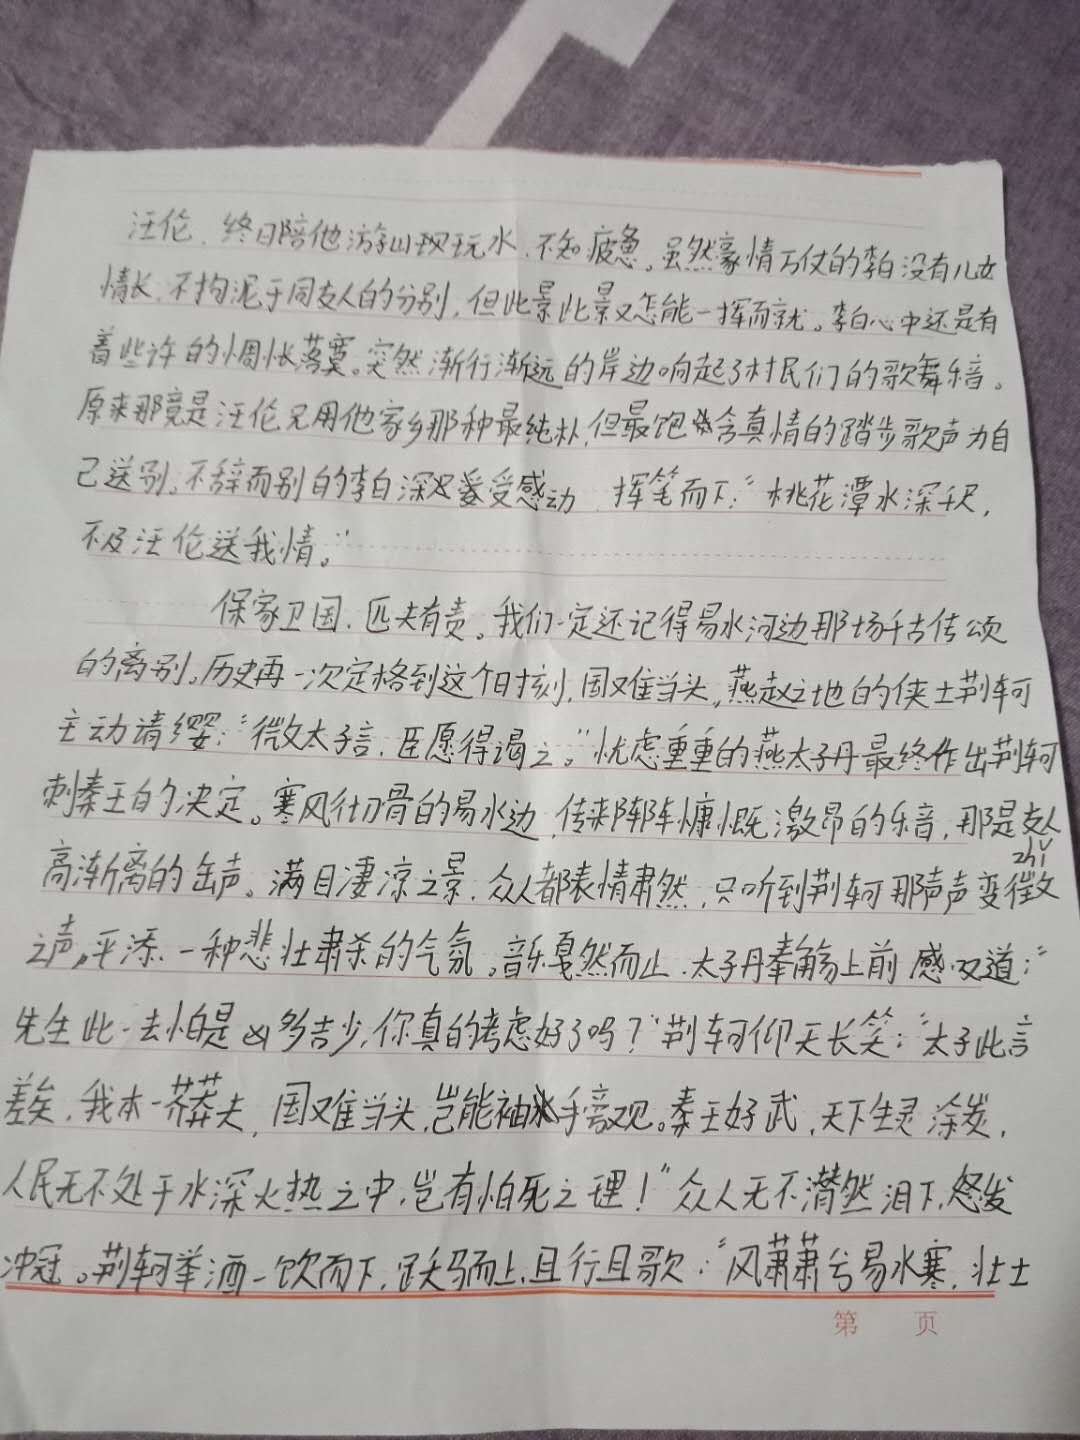 汪伦、终日陪他游山玩水，不知疲惫。虽然豪情万仗的李白没有儿女
情长，不拘泥于同友人的分别，但此景此景又怎能一挥而就。李白心中还是有
着些许的惆怅落寞。突然渐行渐远的岸边响起了村民们的歌舞乐音。
原来那竟是汪伦兄用他家乡那种最纯朴，但最饱含真情的踏步歌声为自
己送别。不辞而别的李白深受感动 挥笔而下：“桃花潭水深千尺，
不及汪伦送我情。”
保家卫国、匹夫有责。我们一定还记得易水河边那场千古传颂
的离别。历史再一次定格到这个时刻，国难当头，燕赵之地的侠士荆轲
主动请缨：“微太子言，臣愿得谒之。”忧虑重重的燕太子丹最终作出荆轲
刺秦王的决定。寒风彻骨的易水边，传来阵阵慷慨激昂的乐音，那是友人
高渐离的缶声。满目凄凉之景，众人都表情肃然，只听到荆轲那声声变徵
zhǐ
之声，平添一种悲壮肃杀的气氛。音乐戛然而止，太子丹奉觞上前感叹道：“
先生此一去怕是凶多吉少，你真的考虑好了吗？”荆轲仰天长笑：“太子此言
差矣，我本一莽夫，国难当头，岂能袖手旁观。秦王好武，天下生灵涂炭，
人民无不处于水深火热之中，岂有怕死之理！”众人无不潸然泪下，怒发
冲冠。荆轲举酒一饮而下，跃马而上，且行且歌：“风萧萧兮易水寒，壮士
第 页